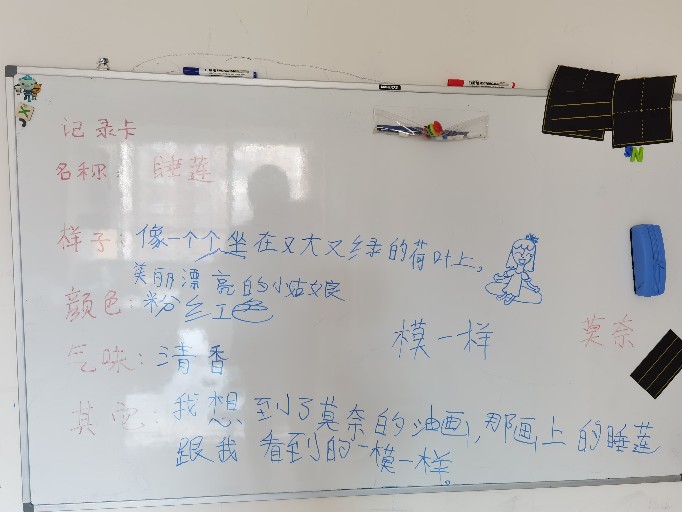 记录卡
名称: 睡莲
样子: 像一个个坐在又大又绿的荷叶上,
美丽漂亮的小姑娘
颜色: 粉红色
气味: 清香
模一样
莫奈
其它: 我想到了莫奈的油画,那画上的睡莲
跟我看到的一模一样。